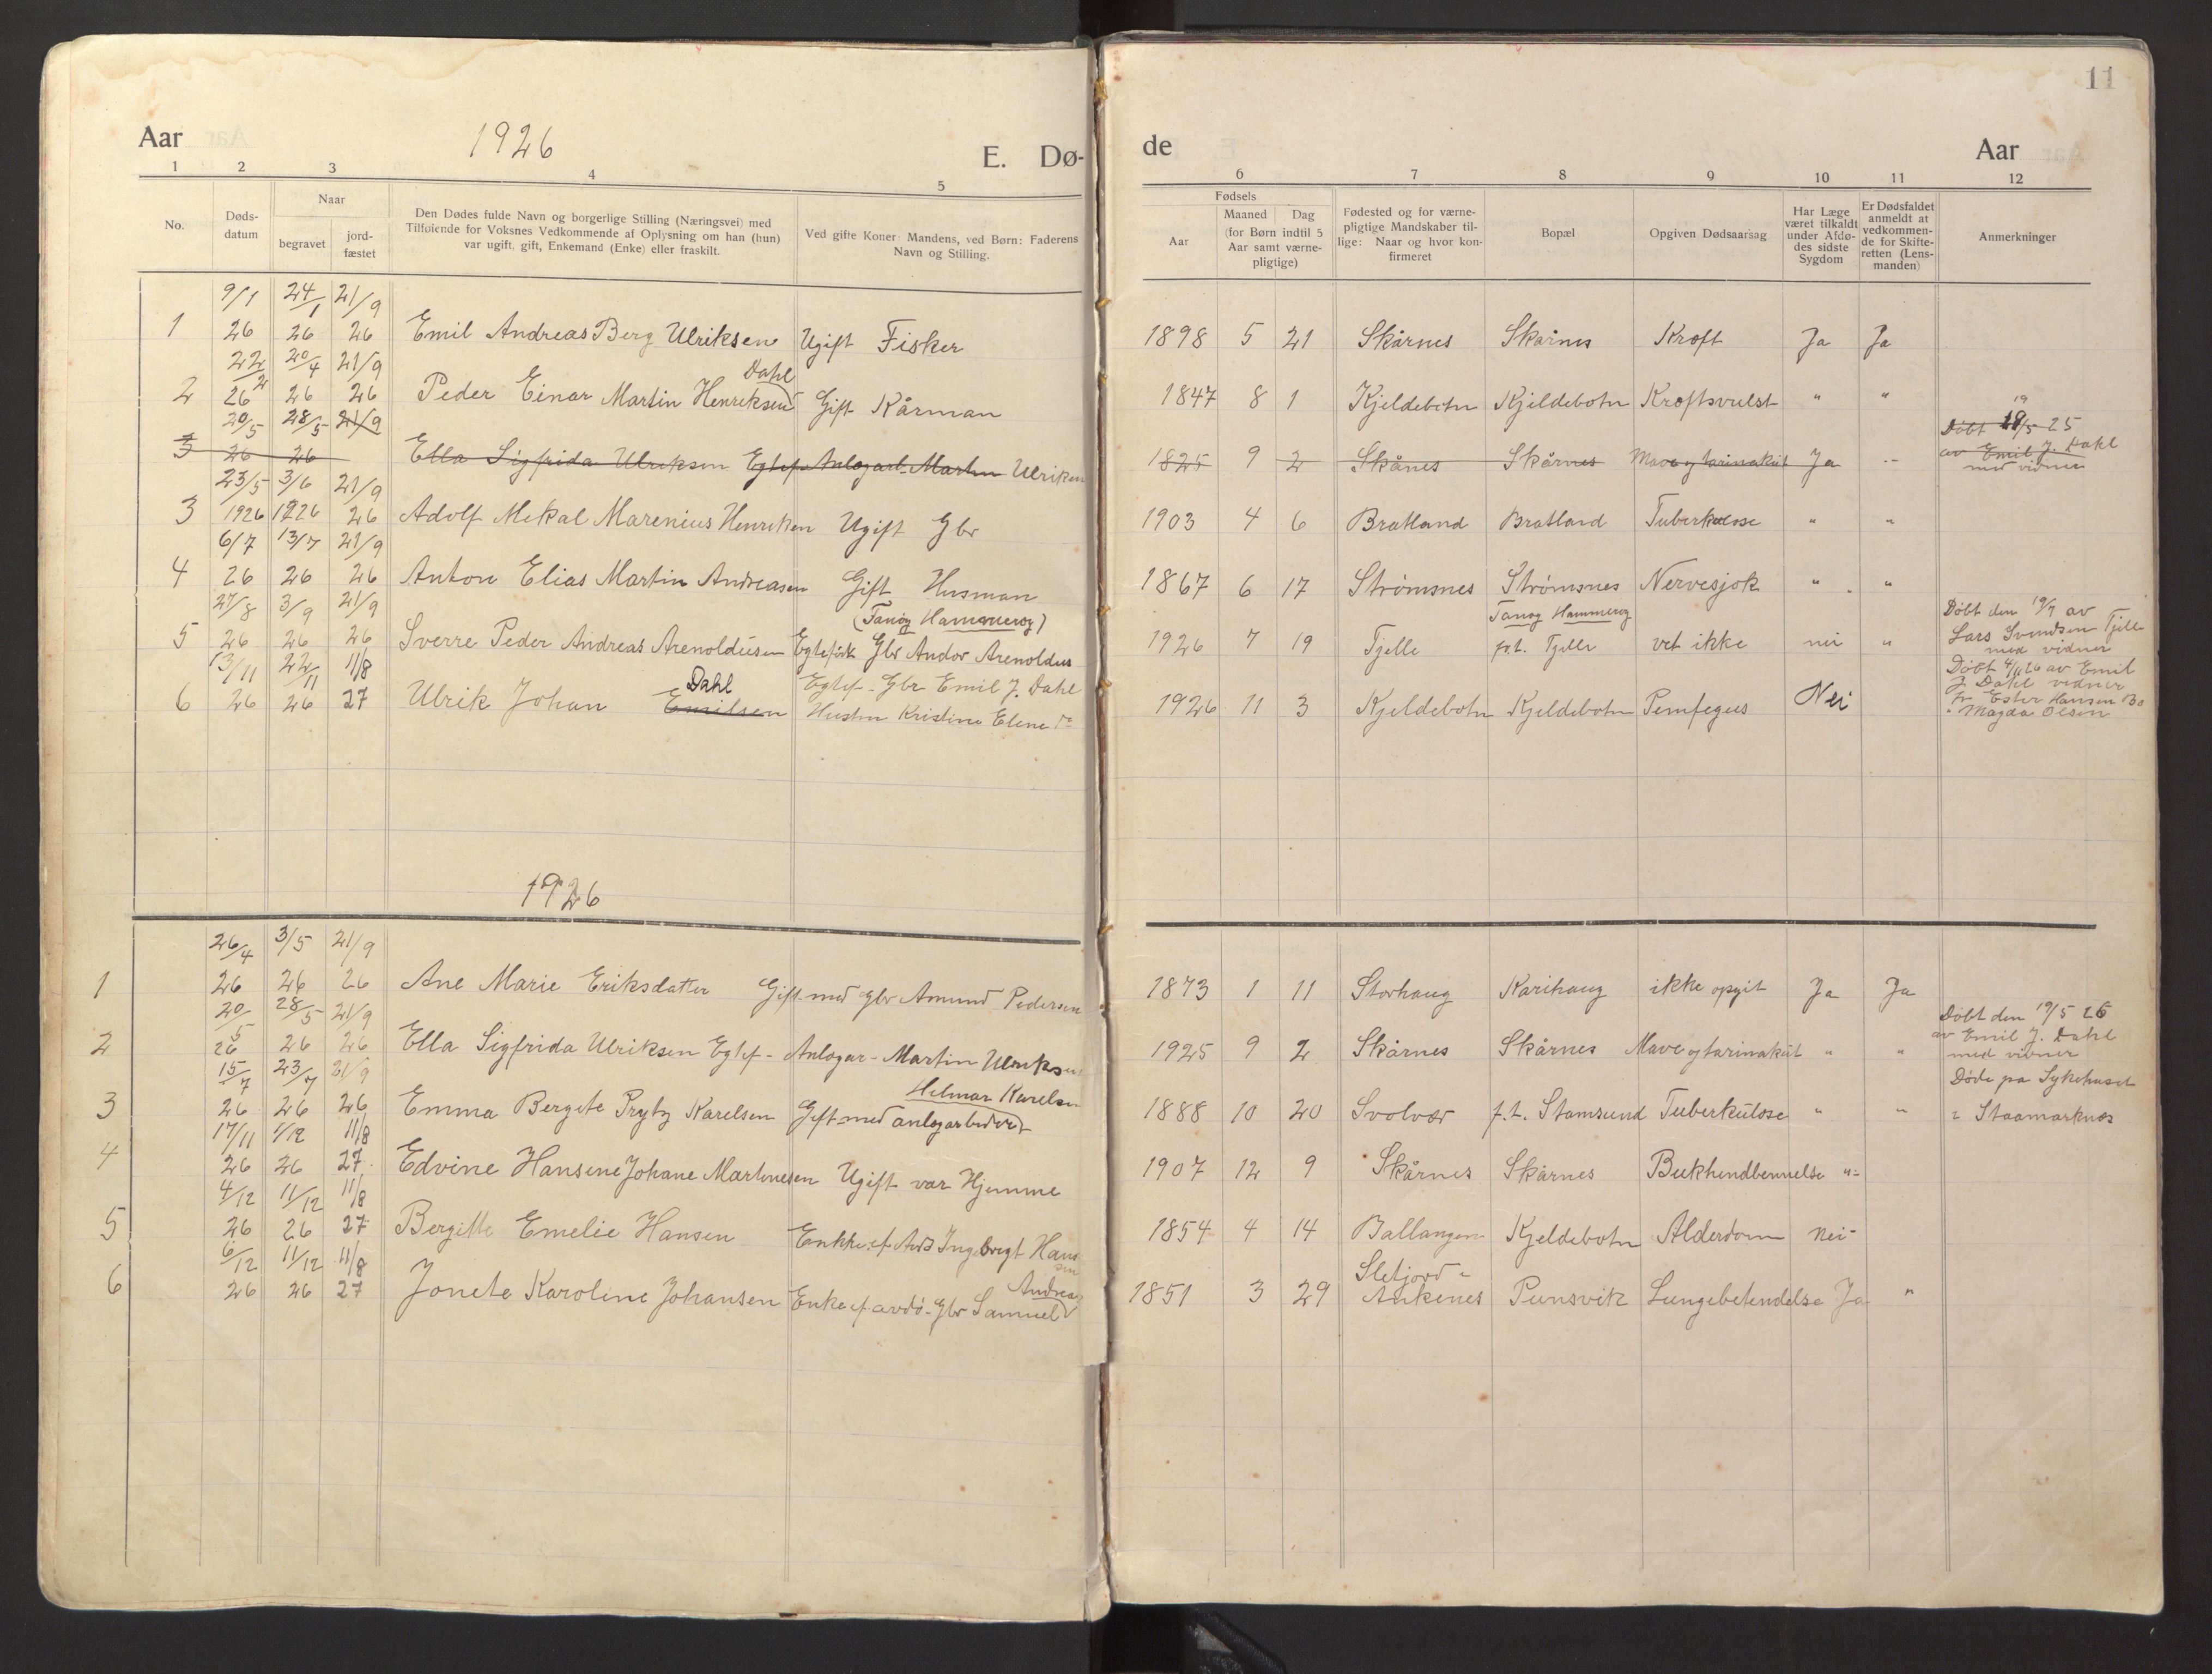 11
Aar 1926 E. Dø- de Aar
1 2 3 4 5 6 7 8 9 10 11 12
No.
Døds-
datum
Naar
begravet
jord-
fæstet
Den Dødes fulde Navn og borgerlige Stilling (Næringsvei) med
Tilføiende for Voksnes Vedkommende af Oplysning om han (hun)
var ugift, gift, Enkemand (Enke) eller fraskilt.
Ved gifte Koner: Mandens, ved Børn: Faderens
Navn og Stilling.
Fødsels
Aar
Maaned Dag
(for Børn indtil 5
Aar samt værne-
pligtige)
Fødested og for værne-
pligtige Mandskaber til-
lige: Naar og hvor kon-
firmeret
Bopæl
Opgiven Dødsaarsag
Har Læge
været tilkaldt
under Afdø-
des sidste
Sygdom
Er Dødsfaldet
anmeldt at
vedkommen-
de for Skifte-
retten (Lens-
manden)
Anmerkninger
9/1 24/1 21/9
1 26 26 26 Emil Andreas Berg Ulriksen Ugift Fisker 1898 5 21 Skårnes Skårnes Kræft Ja Ja
22/2 20/4 21/9 Dahl
2 26 26 26 Peder Einar Martin Henriksen Gift Kårman 1847 8 1 Kjeldebotn Kjeldebotn Kræftsvulst " "
20/5 28/5 21/9 19
Døbt 19/5 25
3 26 26 Ella Sigfrida Ulriksen Egtef. Anlegarb. Martin Ulriksen 1825 9 2 Skånes Skårnes Mave og tarmakut Ja -
av Emil J. Dahl
med vidner
23/5 3/6 21/9
3 1926 1926 26 Adolf Mekal Marenius Henriksen Ugift Gbr 1903 4 6 Bratland Bratland Tuberkulose " "
6/7 13/7 21/9
4 26 26 26 Anton Elias Martin Andreasen Gift Husman 1867 6 17 Strømsnes Strømsnes Nervesjok " "
27/8 3/9 21/9 (Tanøy Hamerøy) Tanøy Hammerøy
5 26 26 26 Sverre Peder Andreas Arenoldusen Egtefødt Gbr Andor Arenoldus 1926 7 19 Tjelle p.t. Tjelle vet ikke nei "
Døbt den 19/7 av
Lars Svendsen Tjelle
med vidner
13/11 22/11 11/8 Dahl Egtef- Gbr Emil J. Dahl
6 26 26 27 Ulrik Johan Emilsen Hustru Kristine Elene do 1926 11 3 Kjeldebotn Kjeldebotn Pemfegus Nei
Døbt 4/11 26 av Emil
J. Dahl vidner
fr Ester Hansen Bo
" Magda Olsen
1926
26/4 3/5 21/9
1 26 26 26 Ane Marie Eriksdatter Gift med Gbr Amund Pedersen 1873 1 11 Storhaug Karihaug ikke opgit Ja Ja
20/5 28/5 21/9
2 26 26 26 Ella Sigfrida Ulriksen Egtef- Anlegar- Martin Ulriksen 1925 9 2 Skårnes Skårnes Mave og tarmakut " "
Døbt den 19/5 26
av Emil J. Dahl
med vidner
15/7 23/7 21/9 Helmar Karelsen
3 26 26 26 Emma Bergete Prytz Karelsen Gift med anlegarbeder 1888 10 20 Svolvær p.t. Stamsund Tuberkulose " "
Døde på Sykehuset
i Staamarknes
17/11 1/12 11/8
4 26 26 27 Edvine Hansine Johane Martinesen Ugift var Hjemme 1907 12 9 Skårnes Skårnes Bukhendbennelse "-
4/12 11/12 11/8
5 26 26 27 Bergitte Emelie Hansen Enkke ef. Avd Ingebregt Hansen 1854 4 14 Ballangen Kjeldebotn Alderdom Nei-
6/12 11/12 11/8 Andreas Sletjord -
6 26 26 27 Jonete Karoline Johansen Enke ef. avdø- Gbr Samuel 1851 3 29 Ankenes Punsvik Lungebetendelse Ja "